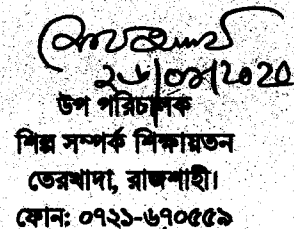 ২৬|০১|2020
উপ পরিচালক
শিল্প সম্পর্ক শিক্ষায়তন
তেরখাদা, রাজশাহী।
ফোন: ০৭২১-৬৭০৫৫৯